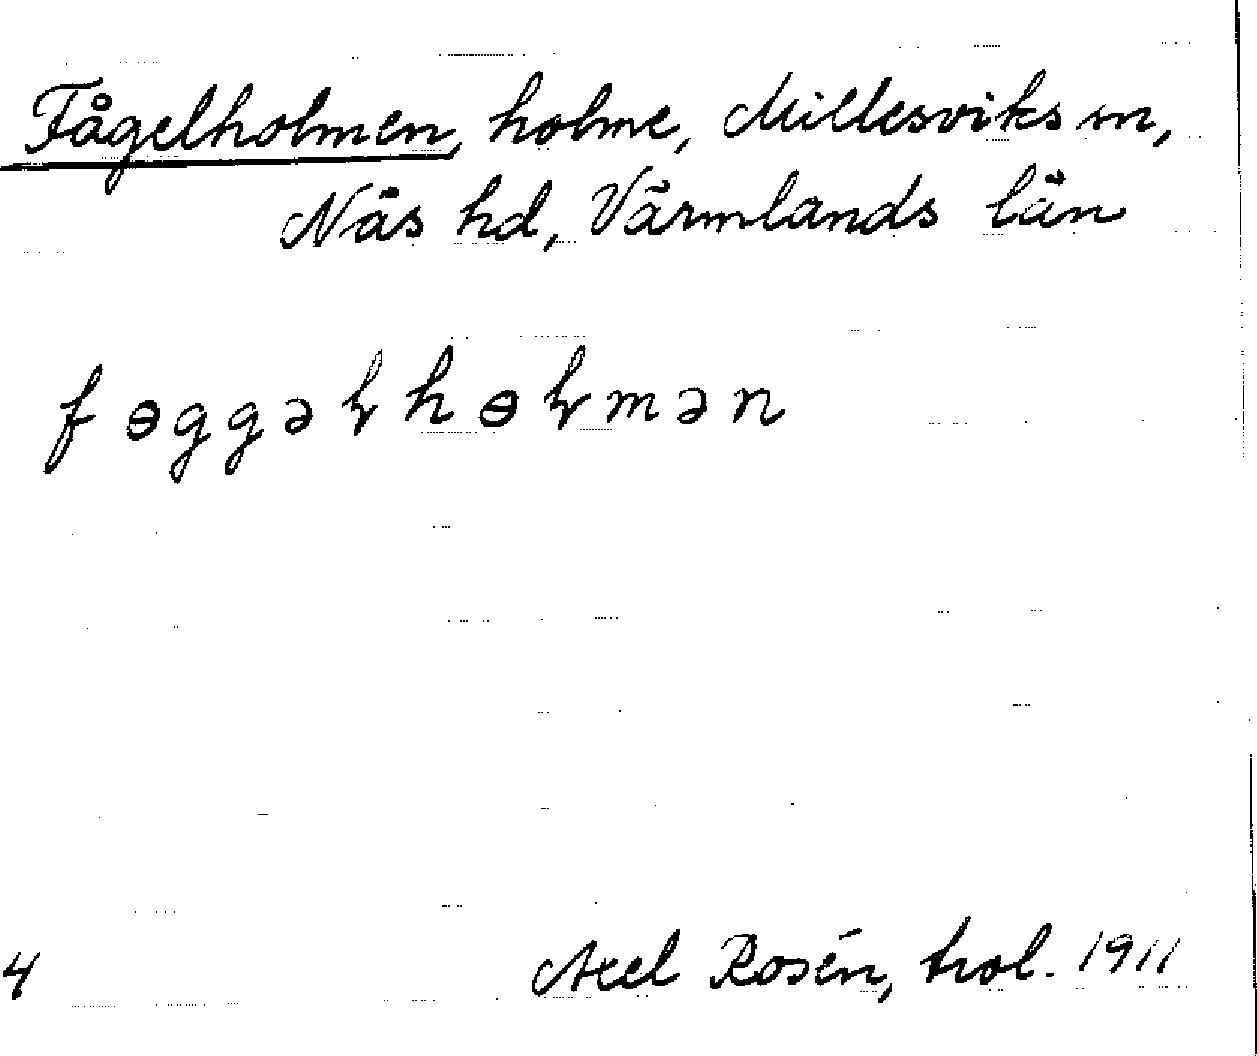 Fågelholmen, holme, Millesviks sn,
Näs hd, Värmlands län
fɵggəɽhɵɽmən
4 Axel Rosén, trol. 1911